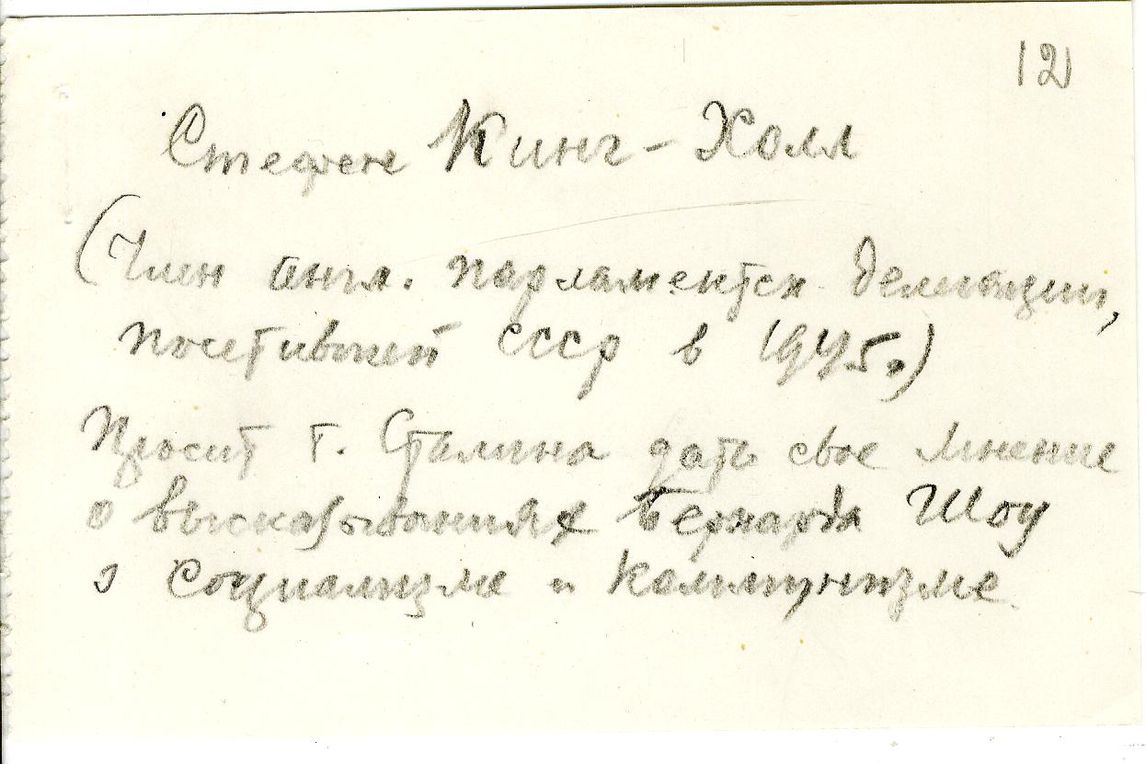 12
Стефен Кинг-Холл
(Член англ. парламентск. делегации,
посетившей СССР в 1945.)
Просит т. Сталина дать свое мнение
о высказываниях Бернарда Шоу
о социализме и коммунизме.